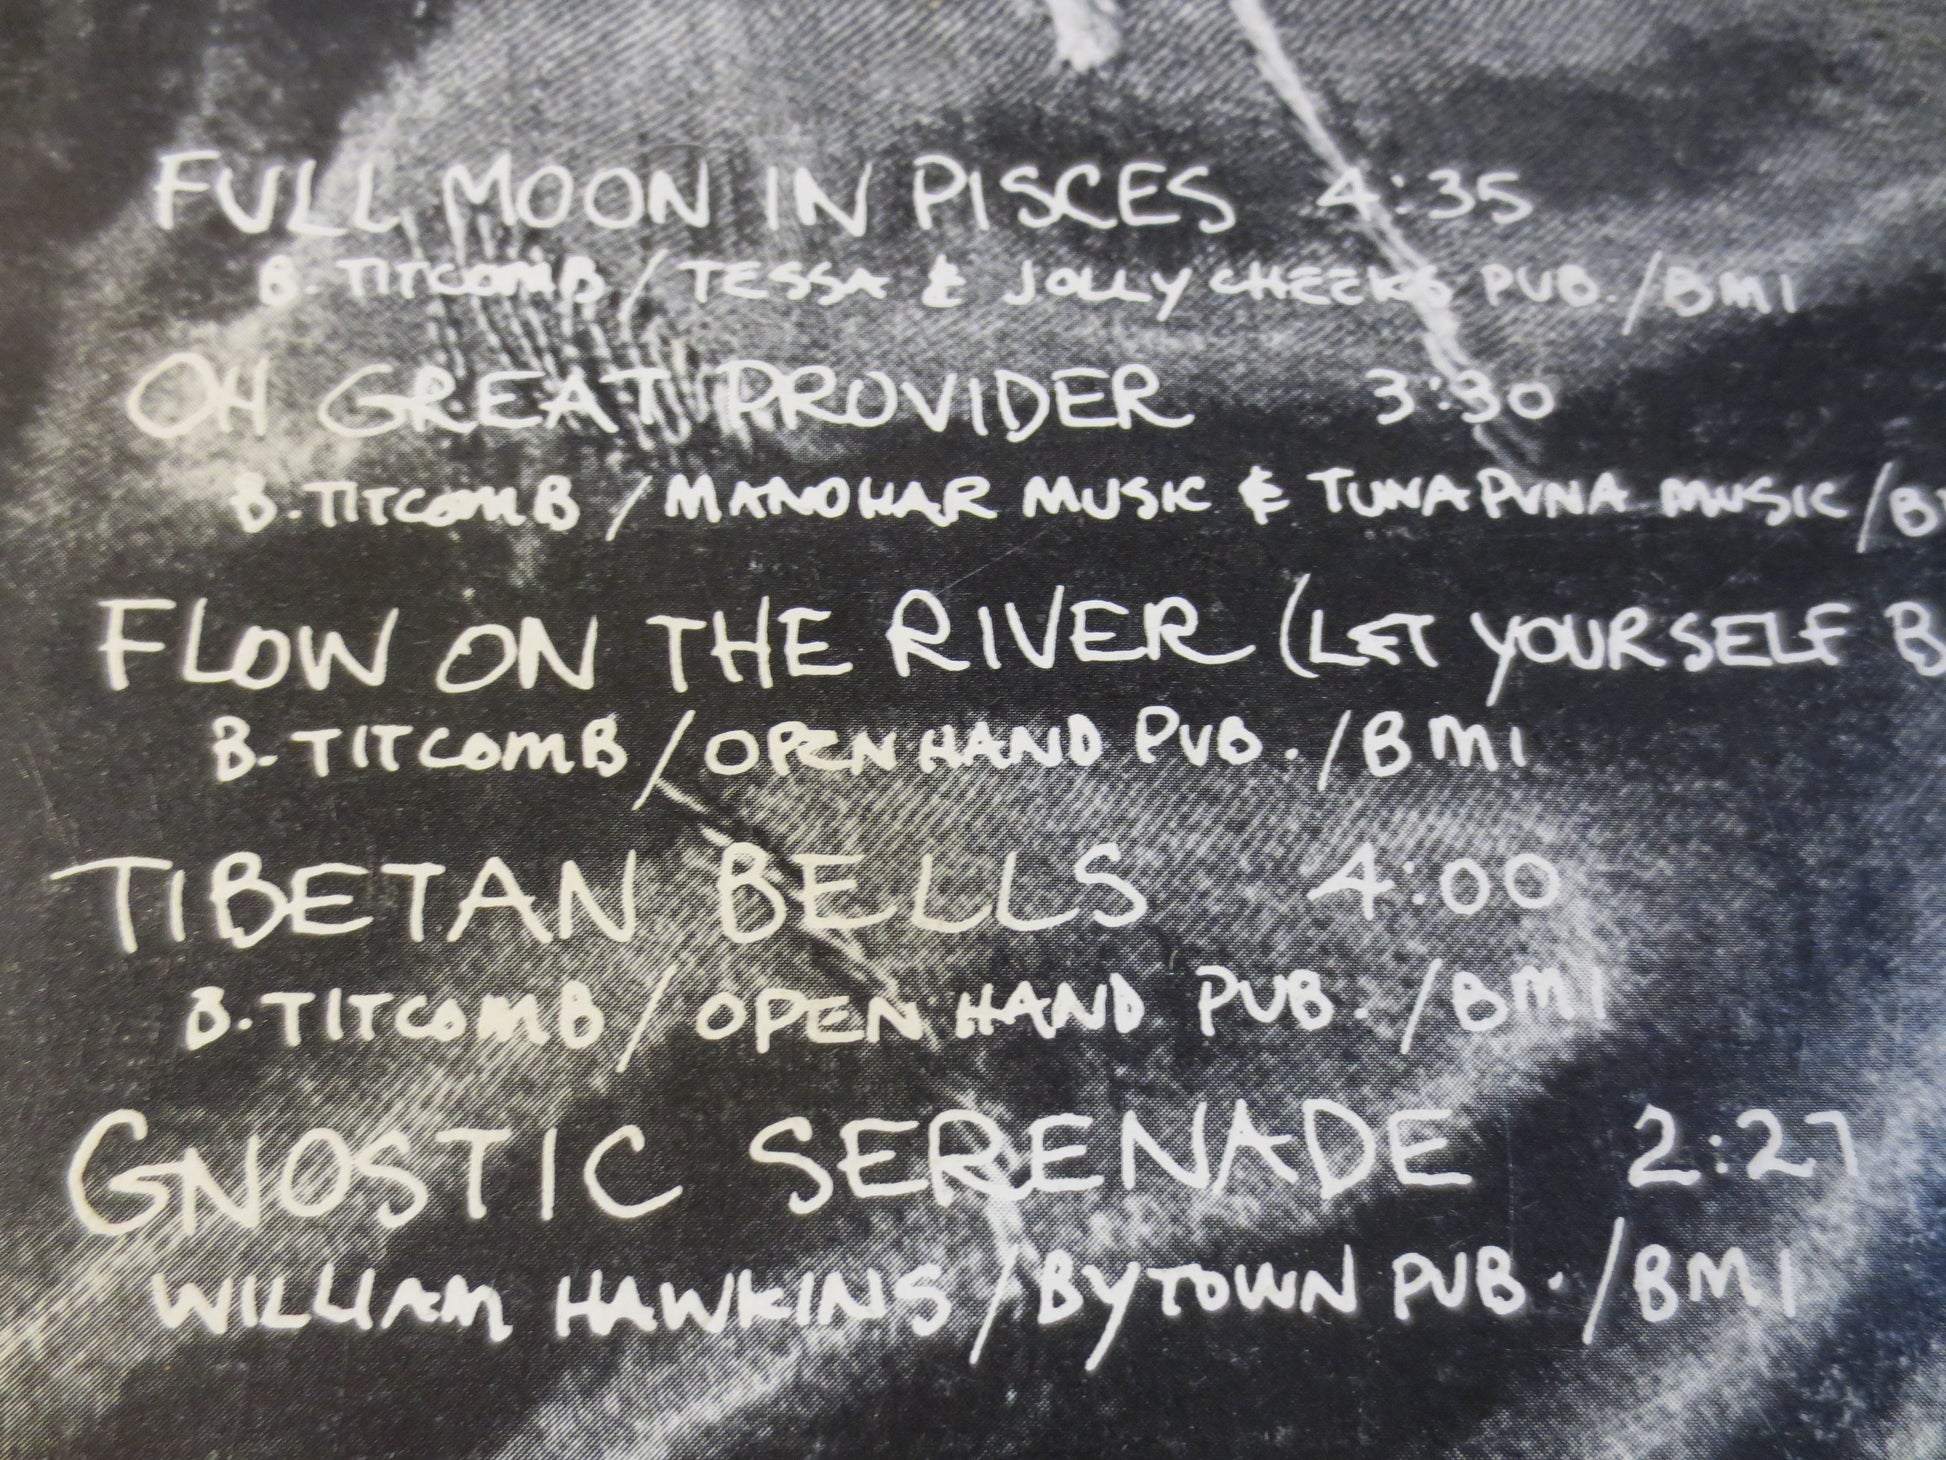 FULL MOON IN PISCES 4:35
B. TITCOMB / TESSA & JOLLY CHEEKS PUB. / BMI
OH GREAT PROVIDER 3:30
B. TITCOMB / MANOHAR MUSIC & TUNAPUNA MUSIC / B
FLOW ON THE RIVER (LET YOURSELF B
B. TITCOMB / OPEN HAND PUB. / BMI
TIBETAN BELLS 4:00
B. TITCOMB / OPEN HAND PUB. / BMI
GNOSTIC SERENADE 2:27
WILLIAM HAWKINS / BYTOWN PUB. / BMI